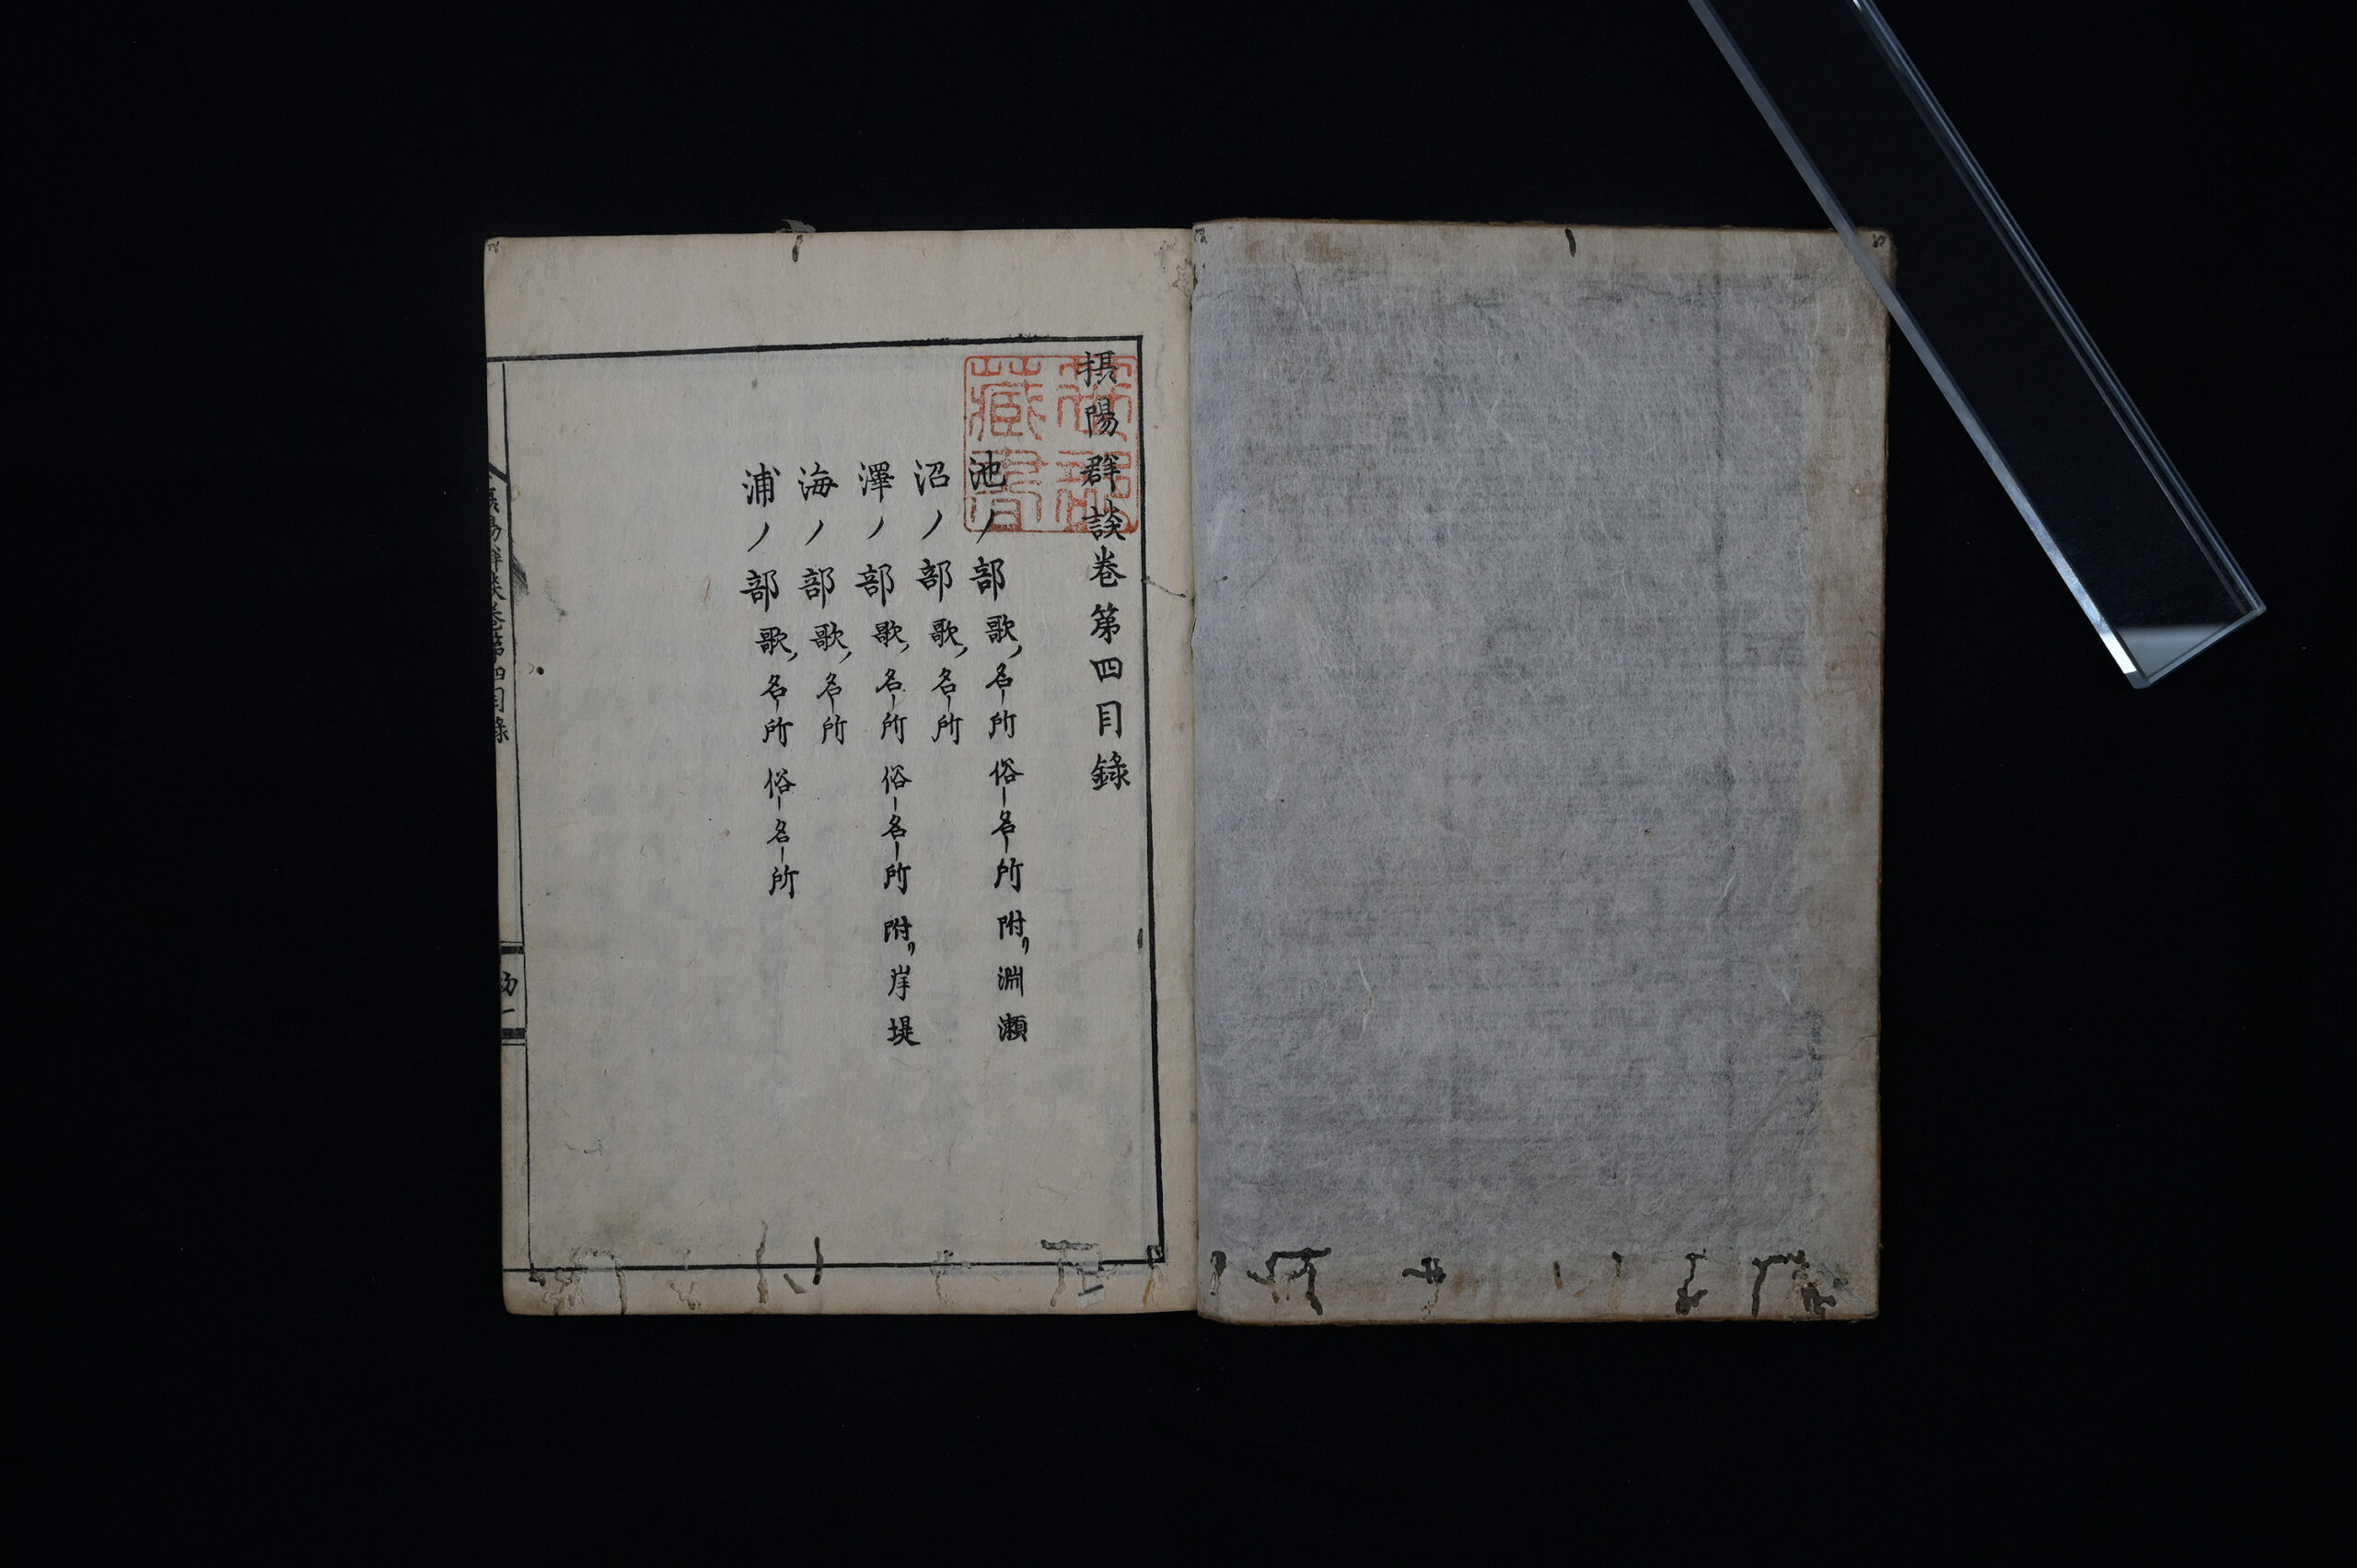 摂陽群談卷第四目錄
池ノ部 歌ノ名所 俗名所 附リ淵瀬
沼ノ部 歌ノ名所
澤ノ部 歌ノ名所 俗名所 附リ岸堤
海ノ部 歌ノ名所
浦ノ部 歌ノ名所 俗名所
陽群談卷第四目錄